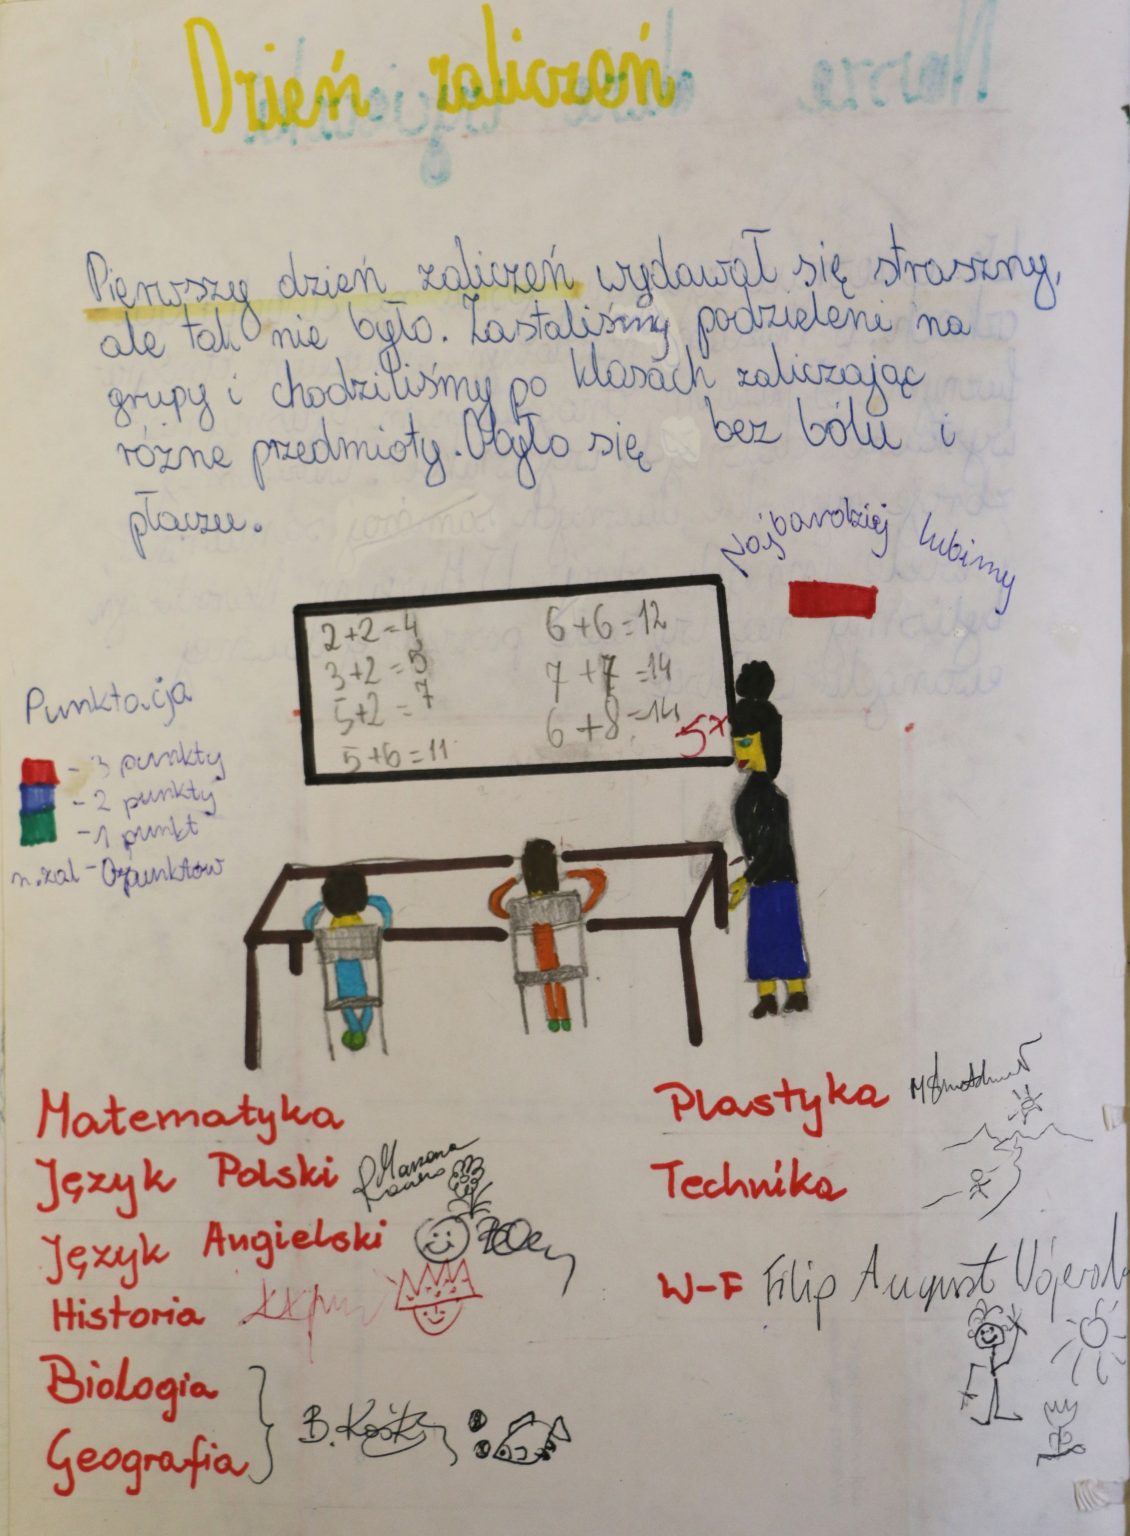 Dzień zaliczeń
Pierwszy dzień zaliczeń wydawał się straszny,
ale tak nie było. Zastaliśmy podzieleni na
grupy i chodziliśmy po klasach zaliczając
różne przedmioty. Obyło się bez bólu i
płaczu.
Najbardziej lubimy
2+2=4
3+2=5
5+2=7
5+6=11
6+6=12
7+7=14
6+8=14
5x
Punktacja
- 3 punkty
- 2 punkty
- 1 punkt
n.zal - 0 punktów
Matematyka
Język Polski Marzena
Język Angielski
Historia
Biologia
Geografia
B.
Plastyka
Technika
W-F Filip August